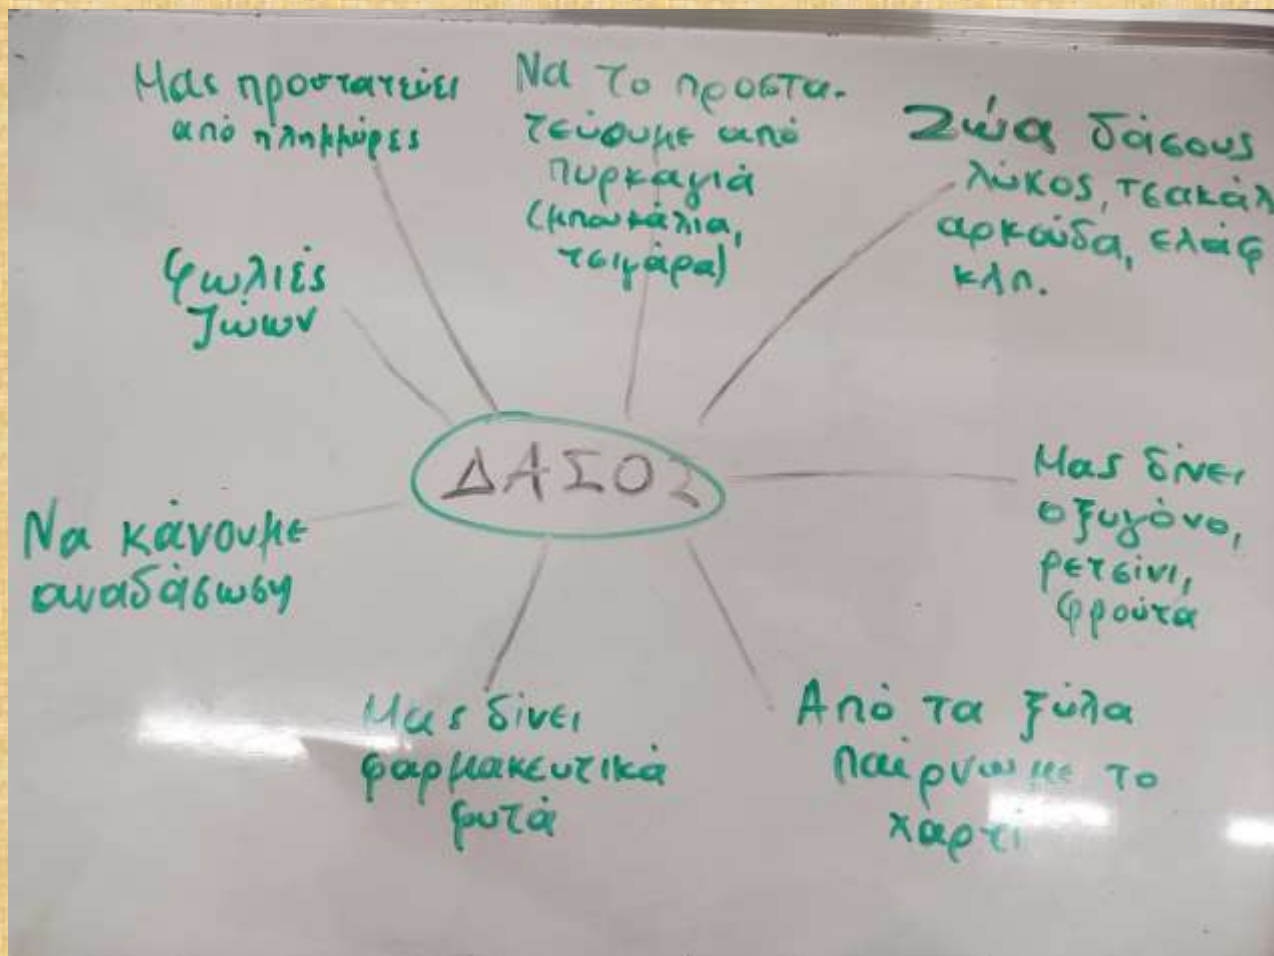 Μας προστατεύει
από πλημμύρες
Να το προστα-
τεύσουμε από
πυρκαγιά
(μπουκάλια,
τσιγάρα)
Ζώα δάσους
λύκος, τσακάλ
αρκούδα, ελάφ
κλπ.
φωλιές
ζώων
ΔΑΣΟΣ
Μας δίνει
οξυγόνο,
ρετσίνι,
φρούτα
Να κάνουμε
αναδάσωση
Μας δίνει
φαρμακευτικά
φυτά
Από τα ξύλα
παίρνουμε το
χαρτί